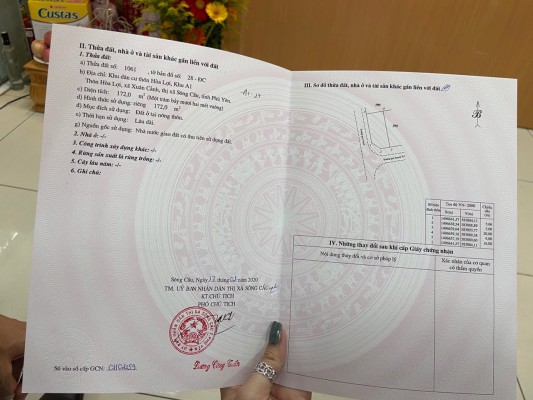 Custas
II. Thửa đất, nhà ở và tài sản khác gắn liền với đất
1. Thửa đất:
a) Thửa đất số: 1061, tờ bản đồ số: 28 - ĐC
b) Địa chỉ: Khu dân cư thôn Hòa Lợi, Khu A1
Thôn Hòa Lợi, xã Xuân Cảnh, thị xã Sông Cầu, tỉnh Phú Yên.
c) Diện tích: 172,0 m² (Một trăm bảy mươi hai mét vuông)
d) Hình thức sử dụng: riêng 172,0 m²
đ) Mục đích sử dụng: Đất ở tại nông thôn.
e) Thời hạn sử dụng: Lâu dài.
g) Nguồn gốc sử dụng: Nhà nước giao đất có thu tiền sử dụng đất.
2. Nhà ở: -/-
3. Công trình xây dựng khác: -/-
4. Rừng sản xuất là rừng trồng: -/-
5. Cây lâu năm: -/-
6. Ghi chú:
Sông Cầu, Ngày tháng 02 năm 2020
TM. ỦY BAN NHÂN DÂN THỊ XÃ SÔNG CẦU
KT.CHỦ TỊCH
PHÓ CHỦ TỊCH
Lương Công Tuấn
Số vào sổ cấp GCN:
III. Sơ đồ thửa đất, nhà ở và tài sản khác gắn liền với đất
B
IV. Những thay đổi sau khi cấp Giấy chứng nhận
Nội dung thay đổi và cơ sở pháp lý
Xác nhận của cơ quan
có thẩm quyền